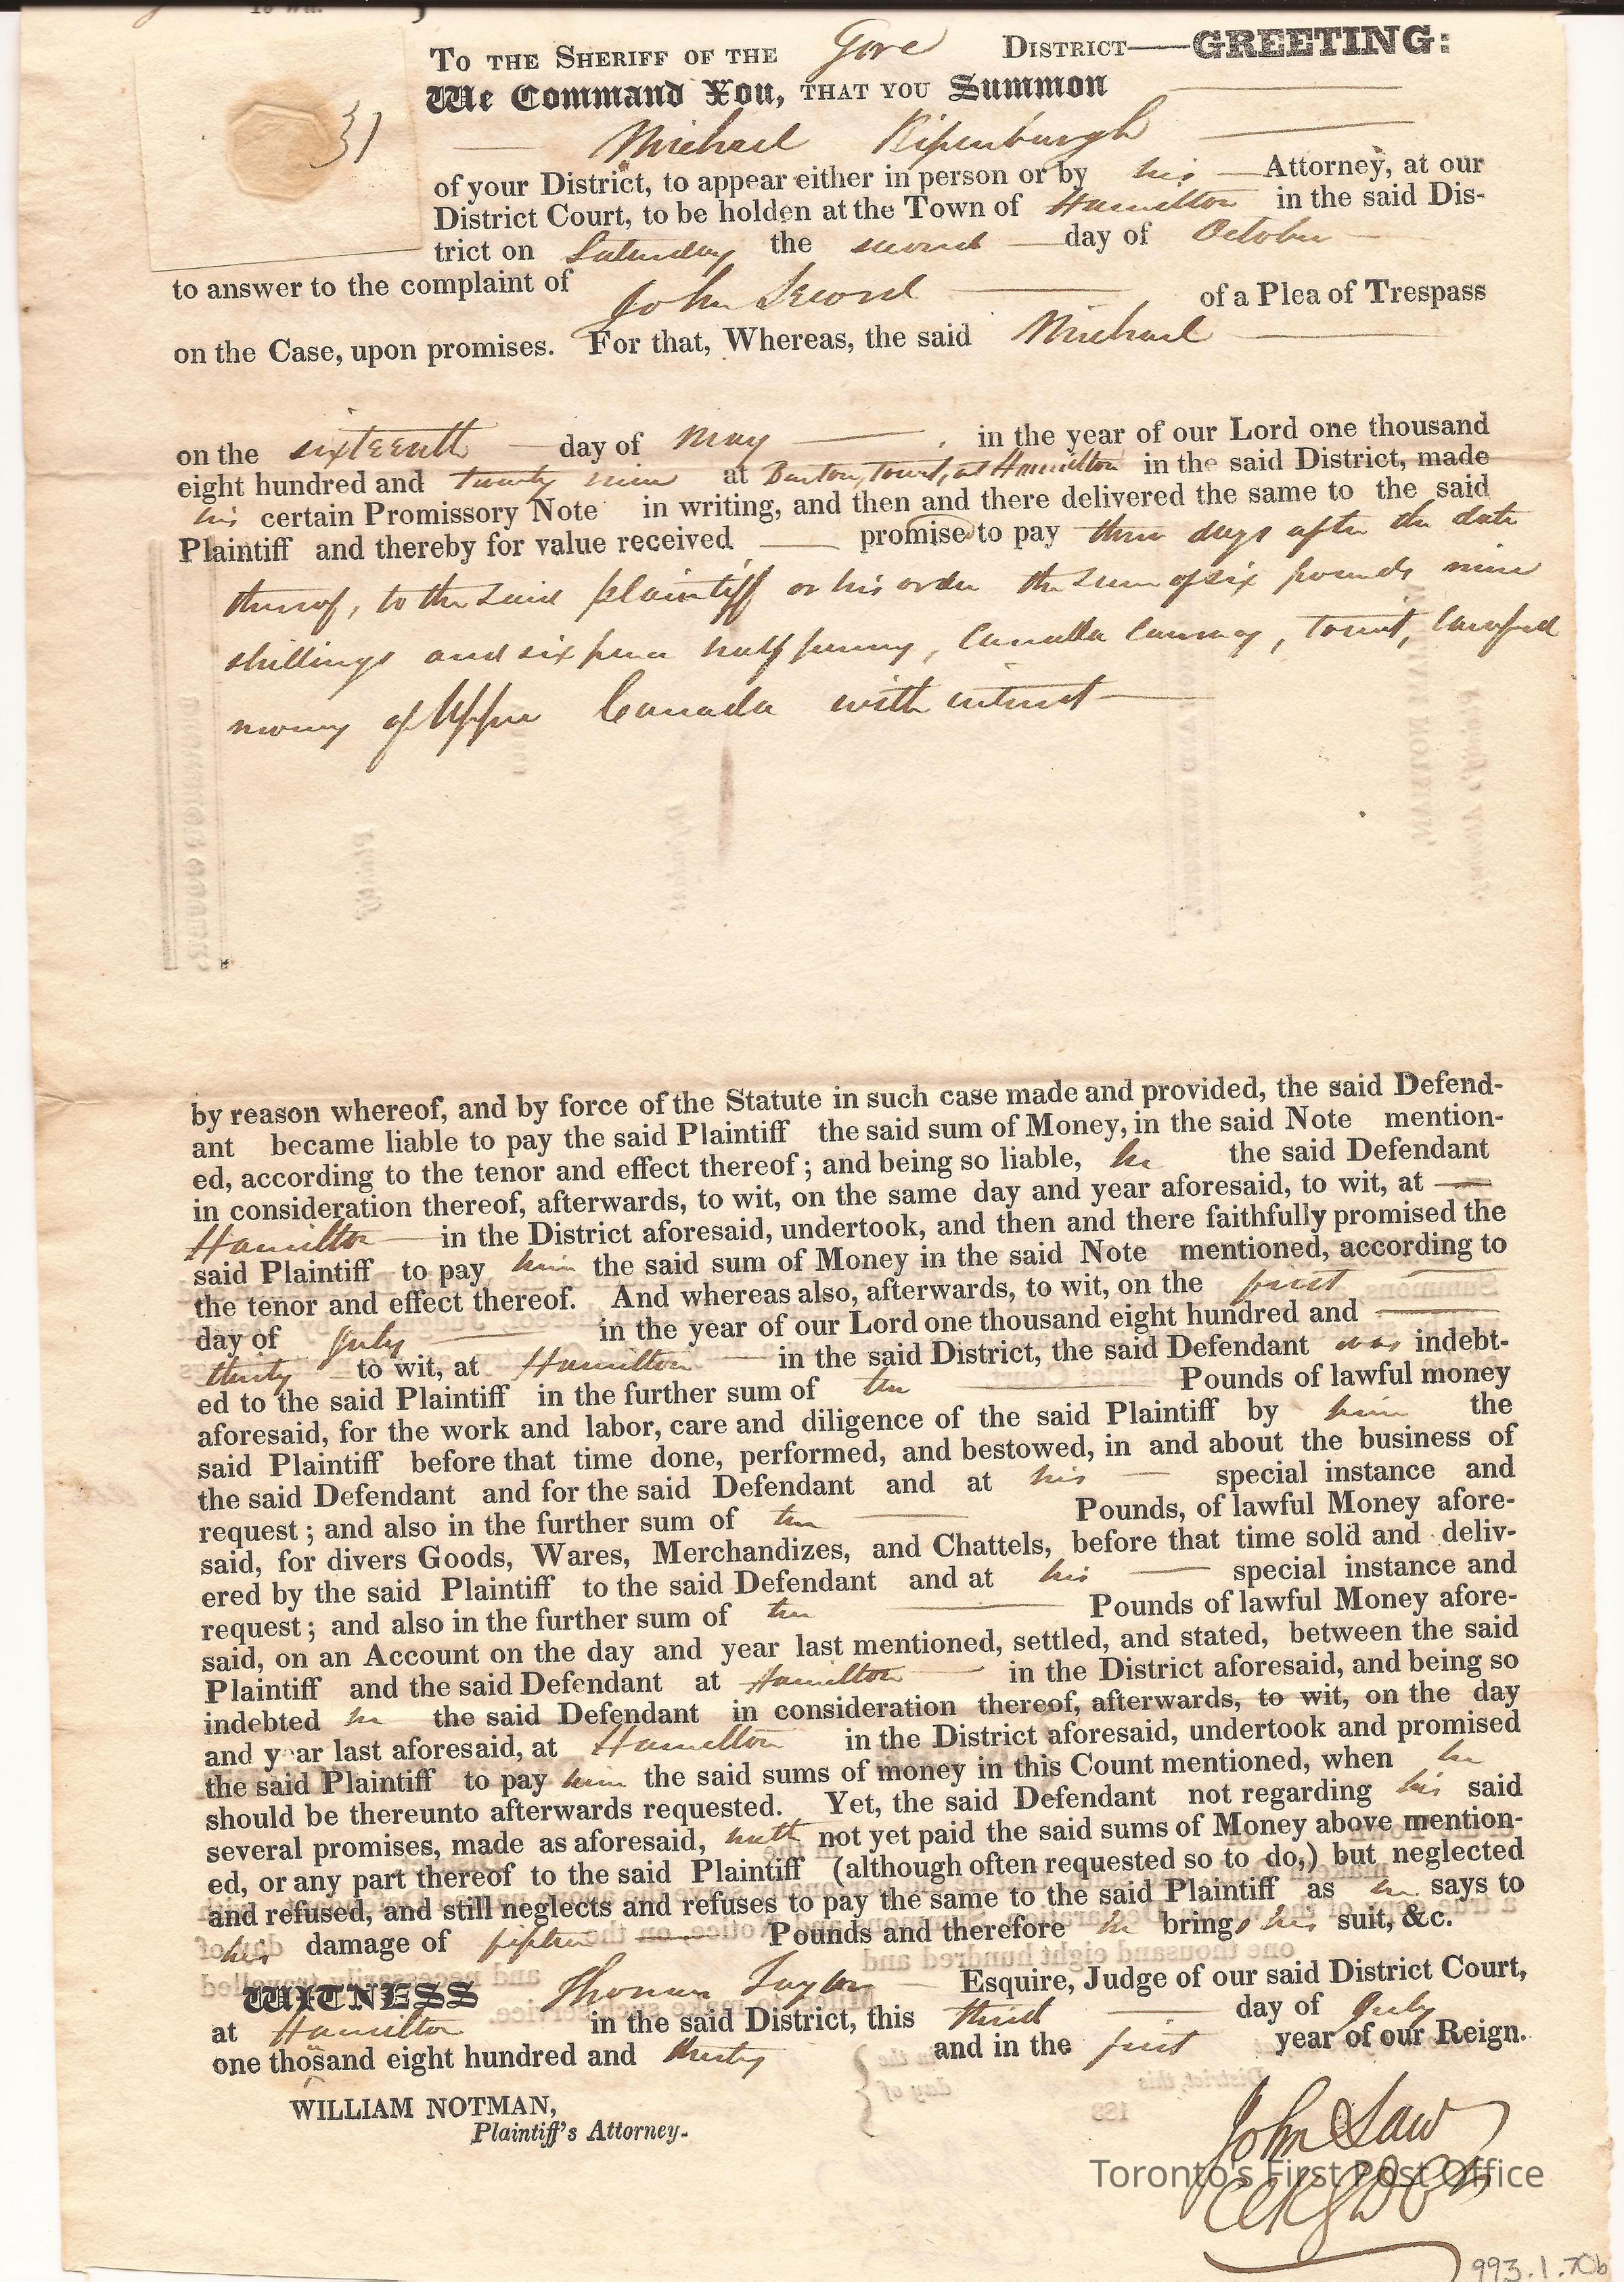 To wit.
TO THE SHERIFF OF THE Gore DISTRICT—GREETING:
We Command You, THAT YOU Summon
31
Michael Ripenburgh
of your District, to appear either in person or by his Attorney, at our
District Court, to be holden at the Town of Hamilton in the said Dis-
trict on Saturday the second day of October
to answer to the complaint of John Secord of a Plea of Trespass
on the Case, upon promises. For that, Whereas, the said Michael
on the sixteenth day of May in the year of our Lord one thousand
eight hundred and twenty nine at Barton, to wit, at Hamilton in the said District, made
his certain Promissory Note in writing, and then and there delivered the same to the said
Plaintiff and thereby for value received promise to pay three days after the date
thereof, to the said plaintiff or his order the sum of six pounds nine
shillings and six pence half penny, Canada Currency, to wit, lawful
money of Upper Canada with interest
by reason whereof, and by force of the Statute in such case made and provided, the said Defend-
ant became liable to pay the said Plaintiff the said sum of Money, in the said Note mention-
ed, according to the tenor and effect thereof; and being so liable, he the said Defendant
in consideration thereof, afterwards, to wit, on the same day and year aforesaid, to wit, at
Hamilton in the District aforesaid, undertook, and then and there faithfully promised the
said Plaintiff to pay him the said sum of Money in the said Note mentioned, according to
the tenor and effect thereof. And whereas also, afterwards, to wit, on the first
day of July in the year of our Lord one thousand eight hundred and
thirty to wit, at Hamilton in the said District, the said Defendant was indebt-
ed to the said Plaintiff in the further sum of ten Pounds of lawful money
aforesaid, for the work and labor, care and diligence of the said Plaintiff by him the
said Plaintiff before that time done, performed, and bestowed, in and about the business of
the said Defendant and for the said Defendant and at his special instance and
request; and also in the further sum of ten Pounds, of lawful Money afore-
said, for divers Goods, Wares, Merchandizes, and Chattels, before that time sold and deliv-
ered by the said Plaintiff to the said Defendant and at his special instance and
request; and also in the further sum of ten Pounds of lawful Money afore-
said, on an Account on the day and year last mentioned, settled, and stated, between the said
Plaintiff and the said Defendant at Hamilton in the District aforesaid, and being so
indebted he the said Defendant in consideration thereof, afterwards, to wit, on the day
and year last aforesaid, at Hamilton in the District aforesaid, undertook and promised
the said Plaintiff to pay him the said sums of money in this Count mentioned, when he
should be thereunto afterwards requested. Yet, the said Defendant not regarding his said
several promises, made as aforesaid, hath not yet paid the said sums of Money above mention-
ed, or any part thereof to the said Plaintiff (although often requested so to do,) but neglected
and refused, and still neglects and refuses to pay the same to the said Plaintiff as he says to
his damage of fifteen Pounds and therefore he brings his suit, &c.
WITNESS Thomas Taylor Esquire, Judge of our said District Court,
at Hamilton in the said District, this third day of July
one thousand eight hundred and thirty and in the first year of our Reign.
WILLIAM NOTMAN,
Plaintiff's Attorney.
John Law
Toronto's First Post Office
993.1.70b